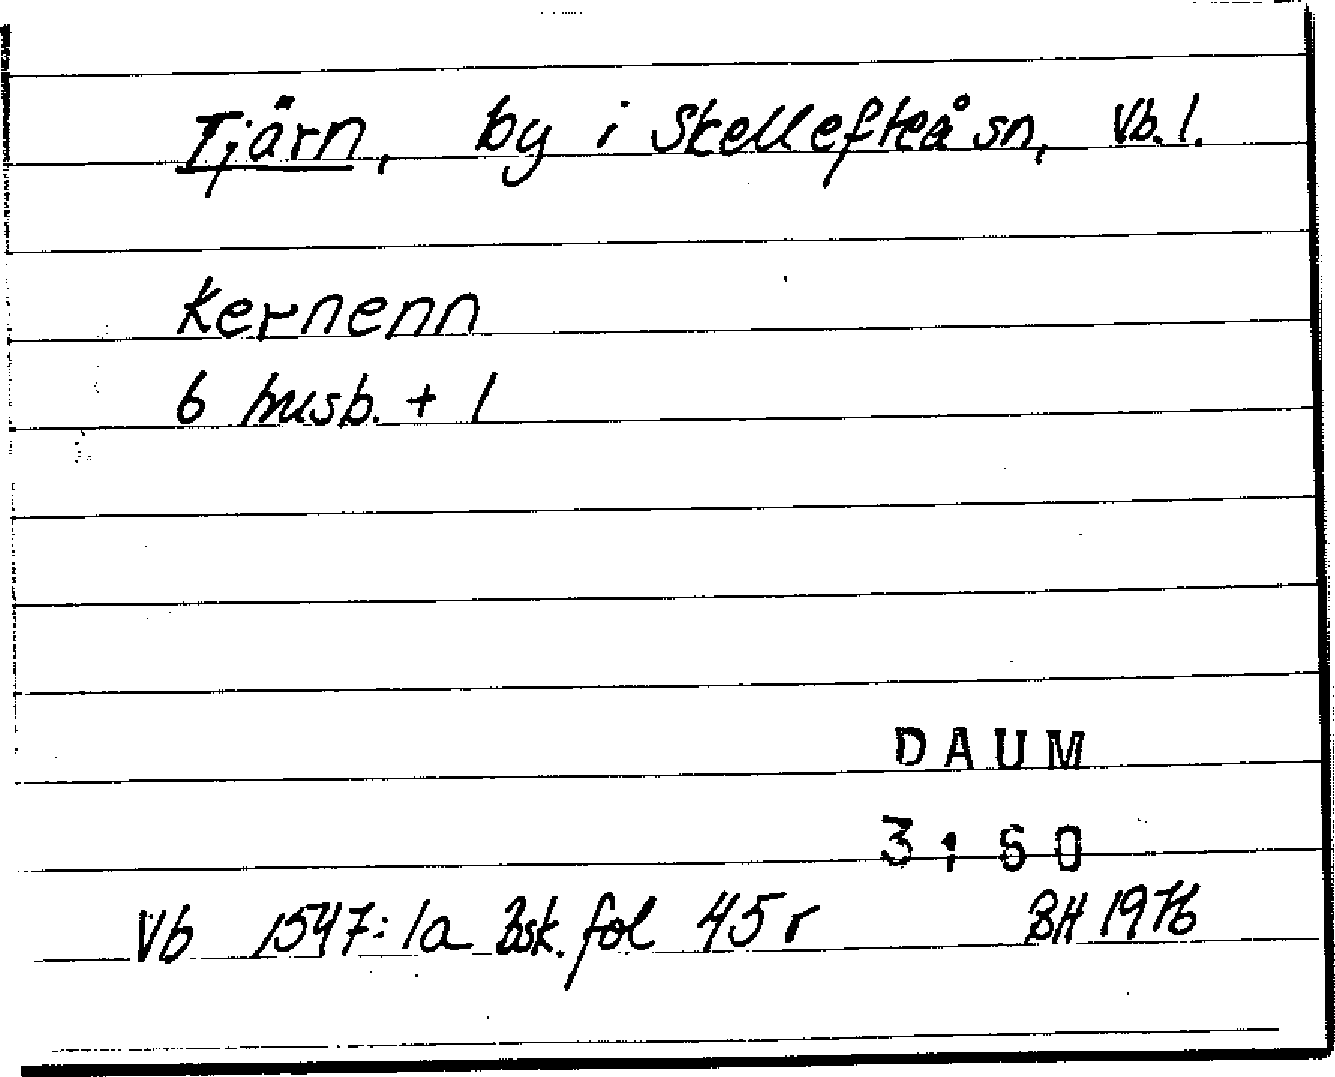 Tjärn, by i Skellefteå sn, Vb. l.
Kernenn
6 husb. + 1
DAUM
3:60
Vb 1547:1a Bsk. fol 45 r BH 1976